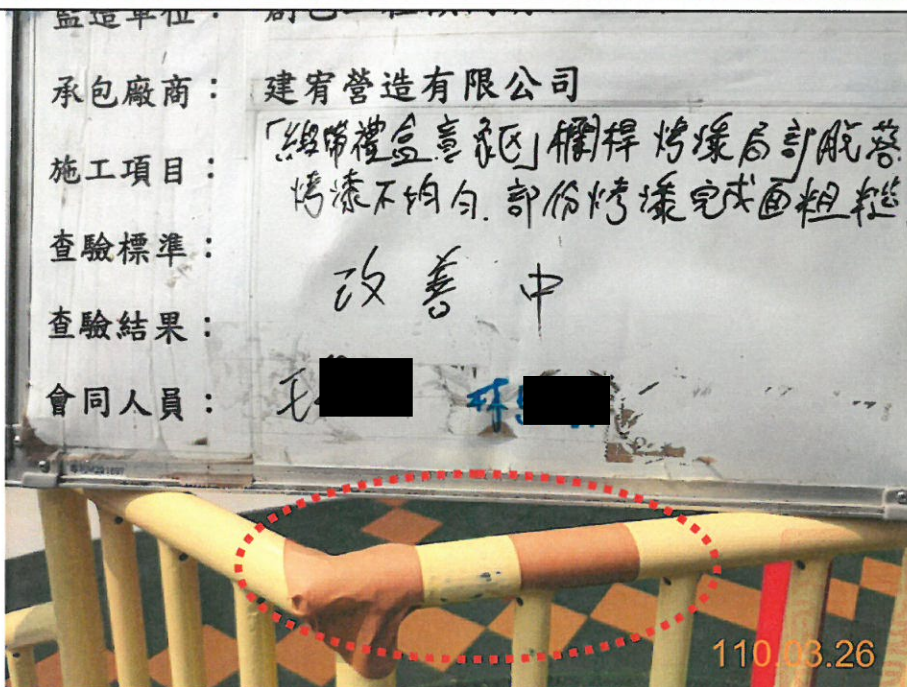 監造單位：
承包廠商： 建宥營造有限公司
施工項目： 「緞帶禮盒意象區」欄桿烤漆局部脫落
烤漆不均勻.部份烤漆完成面粗糙
查驗標準：
改善中
查驗結果：
會同人員： 毛 林
110.03.26